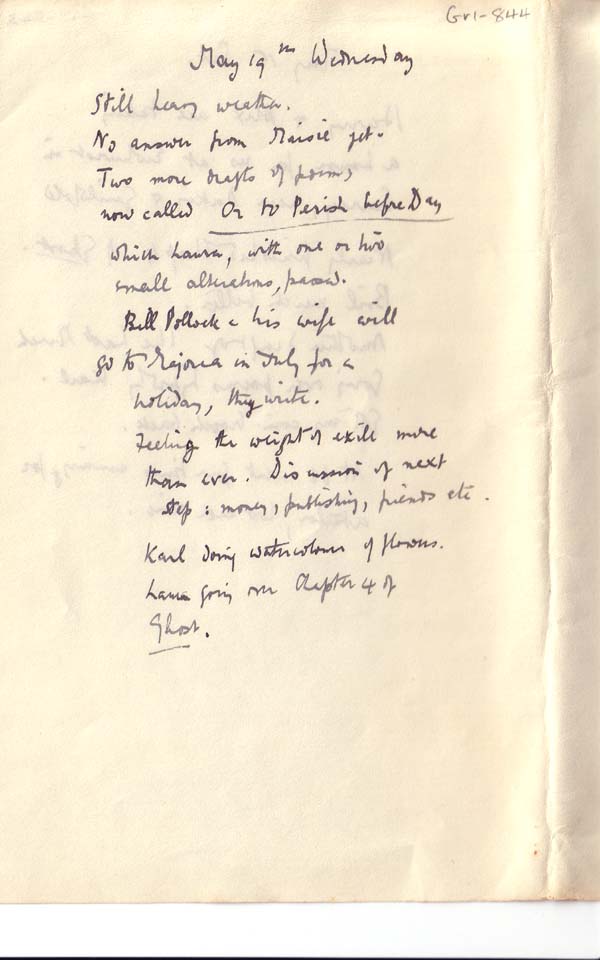 Gr1-844
May 19th Wednesday
Still heavy weather.
No answer from Maisie yet.
Two more drafts of poem,
now called Or to Perish before Day
which Laura, with one or two
small alterations, passed.
Bill Pollock & his wife will
go to Majorca in July for a
holiday, they write.
Feeling the weight of exile more
than ever. Discussion of next
step: money, publishing, friends etc.
Karl doing watercolours of flowers.
Laura going over Chapter 4 of
Ghost.